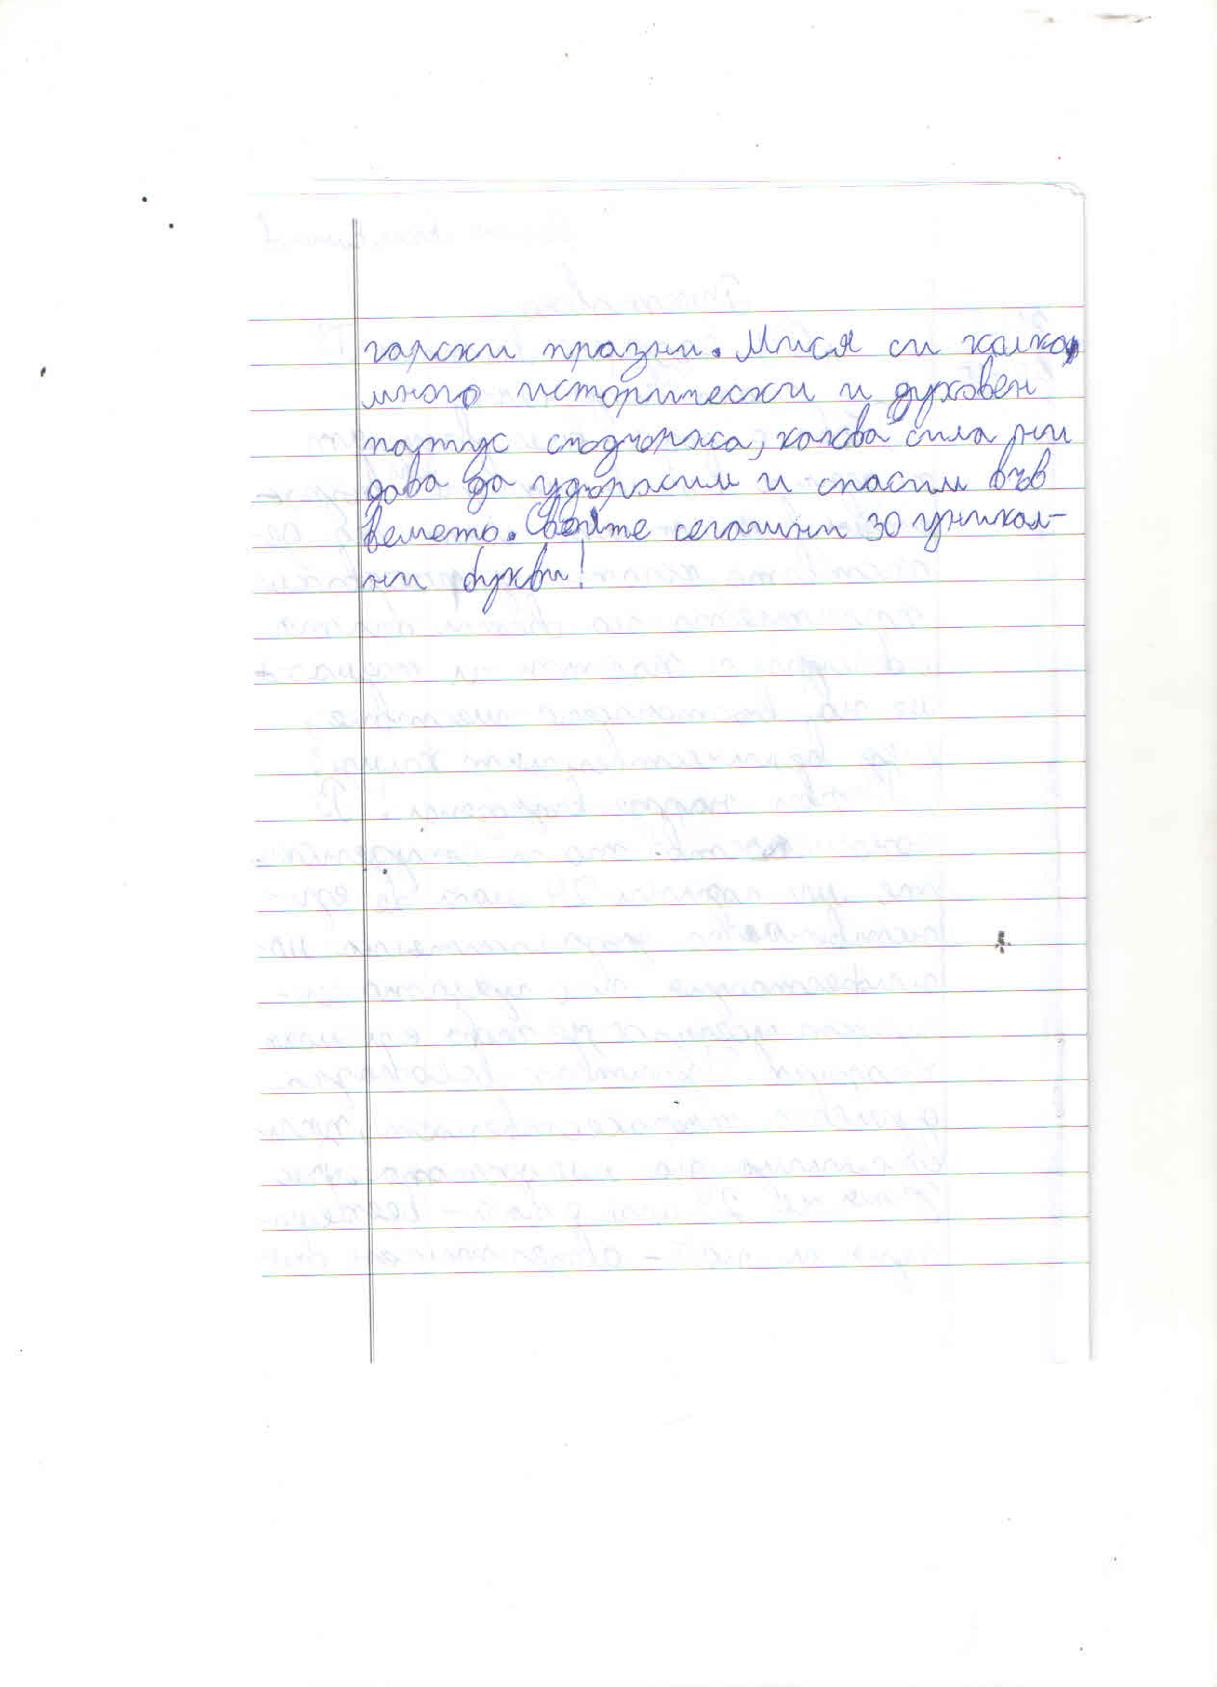 гарски празни. Мися си колко
много исторически и духовен
патус съдържа, каква сила ни
дава да удържим и спасим във
вемето. Свойте сегашни 30 уникал-
ни букви!